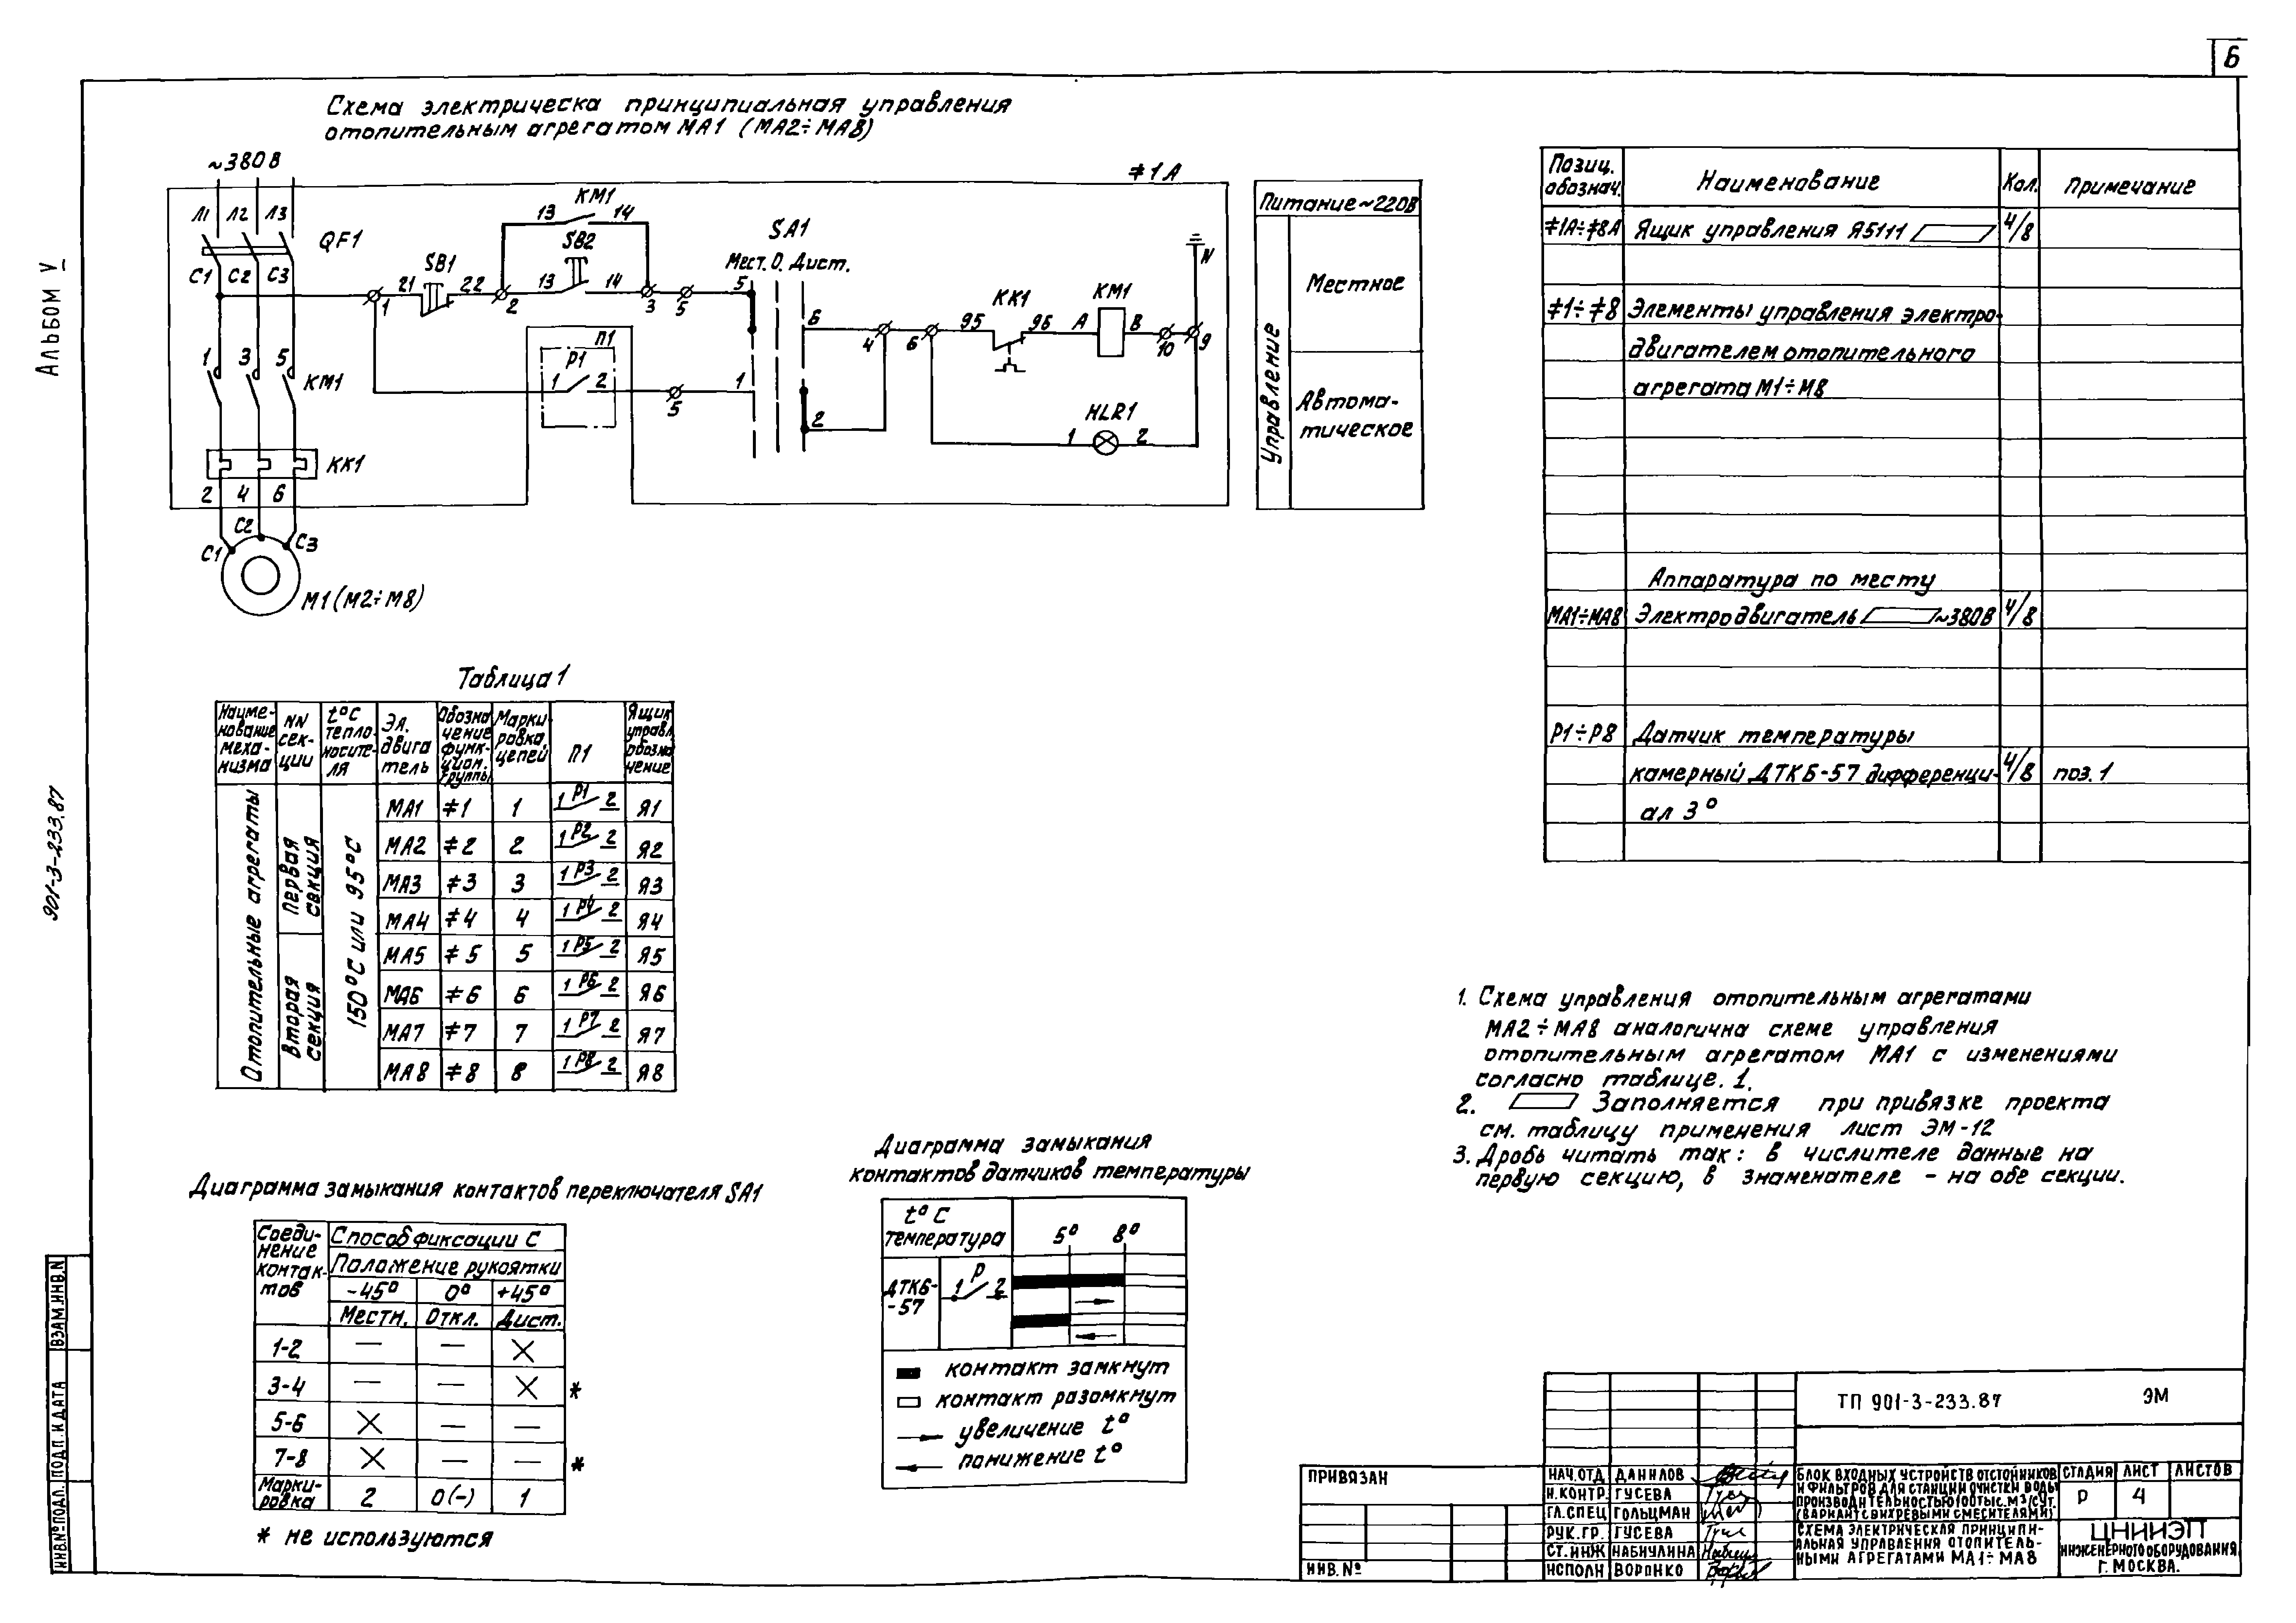 6
Альбом V
901-3-233.87
Схема электрическа принципиальная управления
отопительным агрегатом МА1 (МА2÷МА8)
~380В
≠1А
Л1 Л2 Л3
QF1
С1 С2 С3
КМ1
13 14
SB1
SB2
21 22
13 14
1 2 3 5
SA1
Мест. О. Дист.
5
6
4 6
95 КК1 96
А КМ1 В
10 9
N
П1
Р1
1 2
5
1
2
HLR1
1 2
1 3 5
КМ1
КК1
2 4 6
С1 С2 С3
М1 (М2÷М8)
Питание ~220В
Управление
Местное
Автома-
тическое
Позиц. обознач. Наименование Кол. Примечание
≠1А÷≠8А Ящик управления Я5111 4/8
≠1÷≠8 Элементы управления электро-
двигателем отопительного
агрегата М1÷М8
Аппаратура по месту
МА1÷МА8 Электродвигатель ~380В 4/8
Р1÷Р8 Датчик температуры
камерный ДТКБ-57 дифференци- 4/8 поз. 1
ал 3°
Таблица 1
Наиме-
нование
меха-
низма
NN
сек-
ции
t°С
тепло-
носите-
ля
Эл.
двига
тель
Обозна
чение
функ-
цион.
группы
Марки
ровка
цепей
П1
Ящик
управл
обозна
чение
Отопительные агрегаты
Первая
секция
Вторая
секция
150°С или 95°С
МА1 ≠1 1 1 Р1 2 Я1
МА2 ≠2 2 1 Р2 2 Я2
МА3 ≠3 3 1 Р3 2 Я3
МА4 ≠4 4 1 Р4 2 Я4
МА5 ≠5 5 1 Р5 2 Я5
МА6 ≠6 6 1 Р6 2 Я6
МА7 ≠7 7 1 Р7 2 Я7
МА8 ≠8 8 1 Р8 2 Я8
1. Схема управления отопительным агрегатами
МА2÷МА8 аналогична схеме управления
отопительным агрегатом МА1 с изменениями
согласно таблице. 1.
2. Заполняется при привязке проекта
см. таблицу применения лист ЭМ-12
3. Дробь читать так: в числителе данные на
первую секцию, в знаменателе – на обе секции.
Диаграмма замыкания контактов переключателя SA1
Соеди-
нение
контак-
тов
Способ фиксации С
Положение рукоятки
-45° 0° +45°
Местн. Откл. Дист.
1-2 — — ×
3-4 — — × *
5-6 × — —
7-8 × — — *
Марки-
ровка 2 0(-) 1
* не используются
Диаграмма замыкания
контактов датчиков температуры
t°С
температура
5° 8°
ДТКБ-
-57
1 Р 2
контакт замкнут
контакт разомкнут
увеличение t°
понижение t°
ВЗАМ.ИНВ.N
ПОДП. И ДАТА
ИНВ.№ПОДЛ.
ПРИВЯЗАН
ИНВ.№
ТП 901-3-233.87 ЭМ
НАЧ.ОТД ДАНИЛОВ
Н.КОНТР. ГУСЕВА
ГЛ.СПЕЦ ГОЛЬЦМАН
РУК.ГР. ГУСЕВА
СТ.ИНЖ НАБИУЛИНА
ИСПОЛН ВОРОНКО
БЛОК ВХОДНЫХ УСТРОЙСТВ ОТСТОЙНИКОВ
И ФИЛЬТРОВ ДЛЯ СТАНЦИИ ОЧИСТКИ ВОДЫ
ПРОИЗВОДИТЕЛЬНОСТЬЮ 100ТЫС.М3/СУТ.
(ВАРИАНТ С ВИХРЕВЫМИ СМЕСИТЕЛЯМИ)
СХЕМА ЭЛЕКТРИЧЕСКАЯ ПРИНЦИПИ-
АЛЬНАЯ УПРАВЛЕНИЯ ОТОПИТЕЛЬ-
НЫМИ АГРЕГАТАМИ МА1÷МА8
СТАДИЯ ЛИСТ ЛИСТОВ
Р 4
ЦНИИЭП
ИНЖЕНЕРНОГО ОБОРУДОВАНИЯ
Г. МОСКВА.